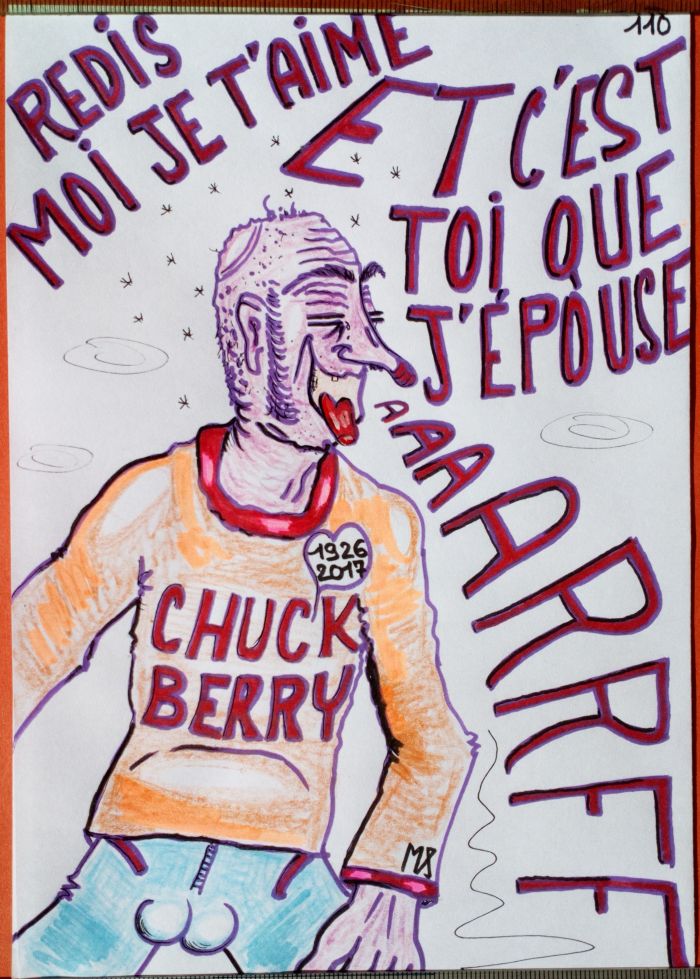 110
REDIS
MOI JE T'AIME
ET C'EST
TOI QUE
J'ÉPOUSE
AAAARRFF
1926
2017
CHUCK
BERRY
MS